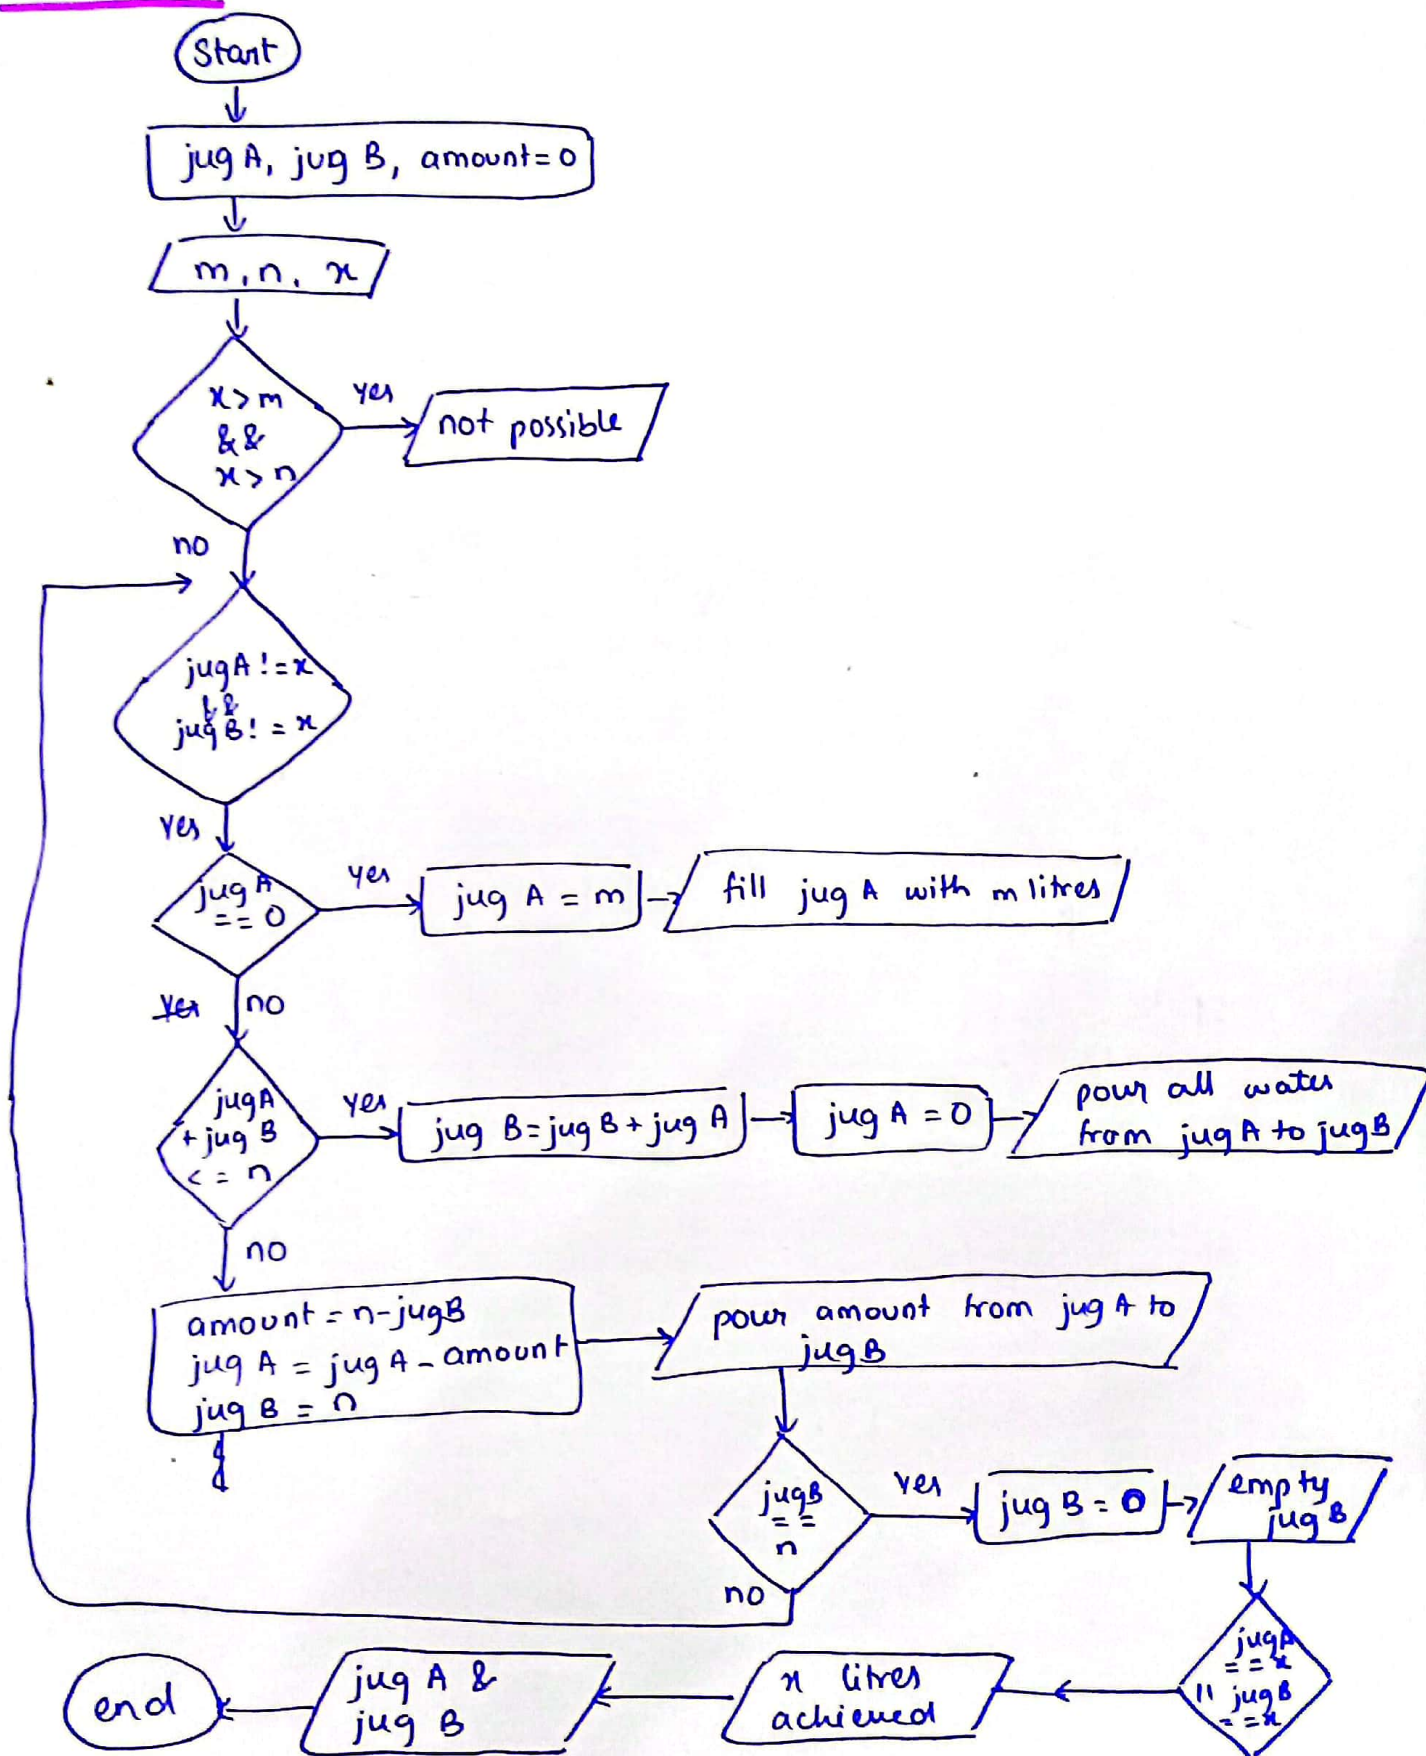 Start
jug A, jug B, amount=0
m, n, x
x>m
&&
x>n
yes
not possible
no
jugA!=x
&&
jugB!=x
yes
jug A
==0
yes
jug A = m
fill jug A with m litres
yes
no
jugA
+jugB
<=n
yes
jug B=jug B+jug A
jug A = 0
pour all water
from jug A to jug B
no
amount=n-jugB
jug A = jug A - amount
jug B = n
pour amount from jug A to
jug B
jugB
==
n
yes
jug B = 0
empty
jug B
no
jugA
==x
|| jugB
==x
x litres
achieved
jug A &
jug B
end